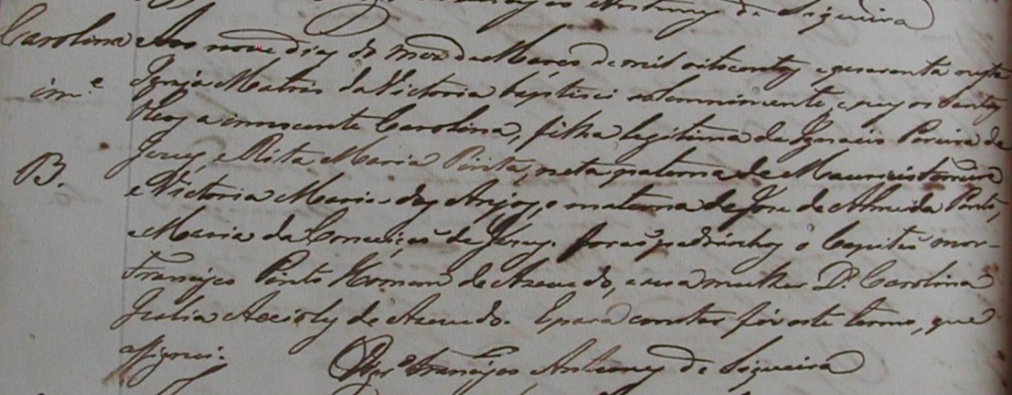 Antunes de Siqueira
Carolina Aos nove dias do mez de Março de mil oitocentos e quarenta nesta
in.e Igreja Matriz da Victoria baptisei solemnimente, e puz os Santos
Oleos a innocente Carolina, filha legitima de Ignacio Pereira de
B. Jesus, e Rita Maria Pinta, neta paterna de Mauricio
e Victoria Maria dos Anjos, e materna de Jose de Almeida Pinto,
e Maria da Conceição de Jesus. forão padrinhos o Capitão mor
Francisco Pinto Homem de Azevedo, e sua mulher D. Carolina
Julia Accioly de Azevedo. E para constar fiz este termo, que
assignei.
Francisco Antunes de Siqueira